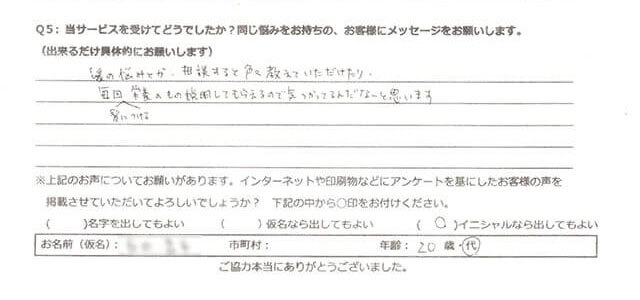 Q5:当サービスを受けてどうでしたか?同じ悩みをお持ちの、お客様にメッセージをお願いします。
(出来るだけ具体的にお願いします)
悩みとか、相談すると色々教えていただけたり、
毎回栄養のもの説明してもらえるので気つかってるんだなーと思います
※上記のお声についてお願いがあります。インターネットや印刷物などにアンケートを基にしたお客様の声を
掲載させていただいてよろしいでしょうか? 下記の中から〇印をお付けください。
( )名字を出してもよい ( )仮名なら出してもよい ( ○ )イニシャルなら出してもよい
お名前(仮名): 市町村: 年齢:20歳・代
ご協力本当にありがとうございました。